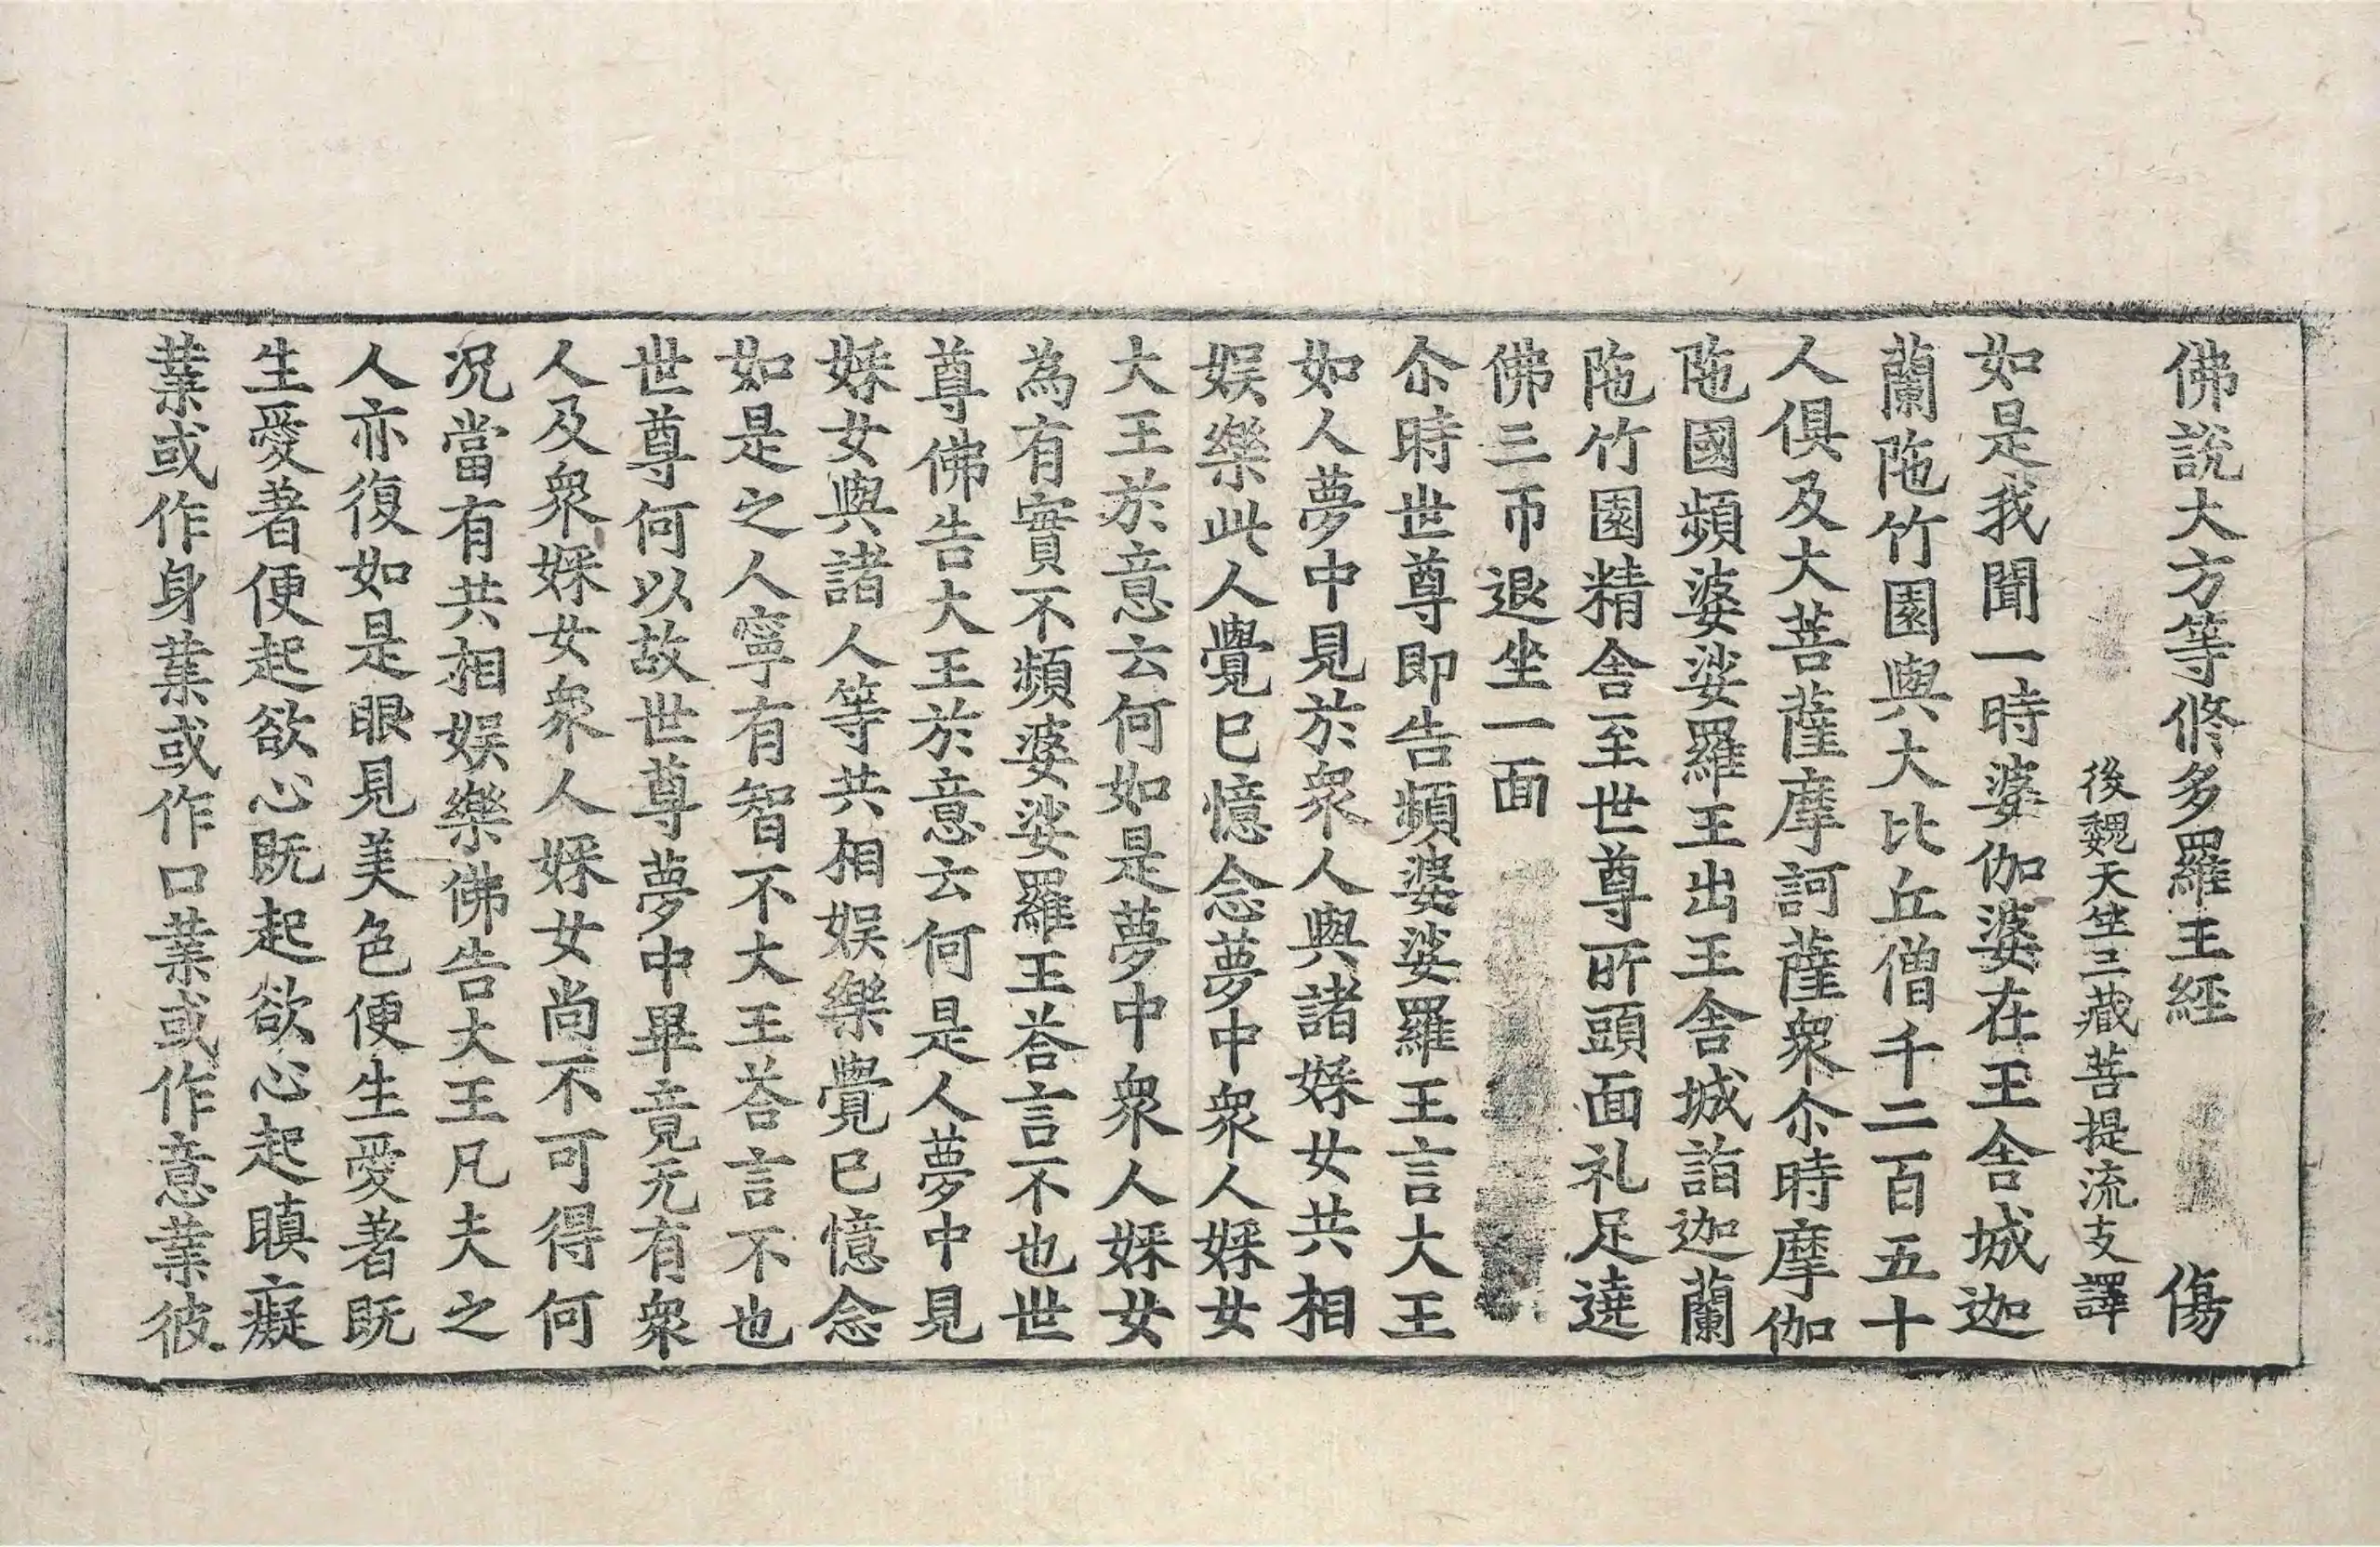 佛說大方等修多羅王經　傷
後魏天竺三藏菩提流支譯
如是我聞一時婆伽婆在王舍城迦
蘭陁竹園與大比丘僧千二百五十
人俱及大菩薩摩訶薩衆尒時摩伽
陁國頻婆娑羅王出王舍城詣迦蘭
陁竹園精舍至世尊所頭面礼足遶
佛三帀退坐一面
尒時世尊即告頻婆娑羅王言大王
如人夢中見於衆人與諸婇女共相
娛樂此人覺已憶念夢中衆人婇女
大王於意云何如是夢中衆人婇女
為有實不頻婆娑羅王荅言不也世
尊佛告大王於意云何是人夢中見
婇女與諸人等共相娛樂覺已憶念
如是之人寧有智不大王荅言不也
世尊何以故世尊夢中畢竟无有衆
人及衆婇女衆人婇女尚不可得何
况當有共相娛樂佛告大王凡夫之
人亦復如是眼見美色便生愛著既
生愛著便起欲心既起欲心起瞋癡
業或作身業或作口業或作意業彼